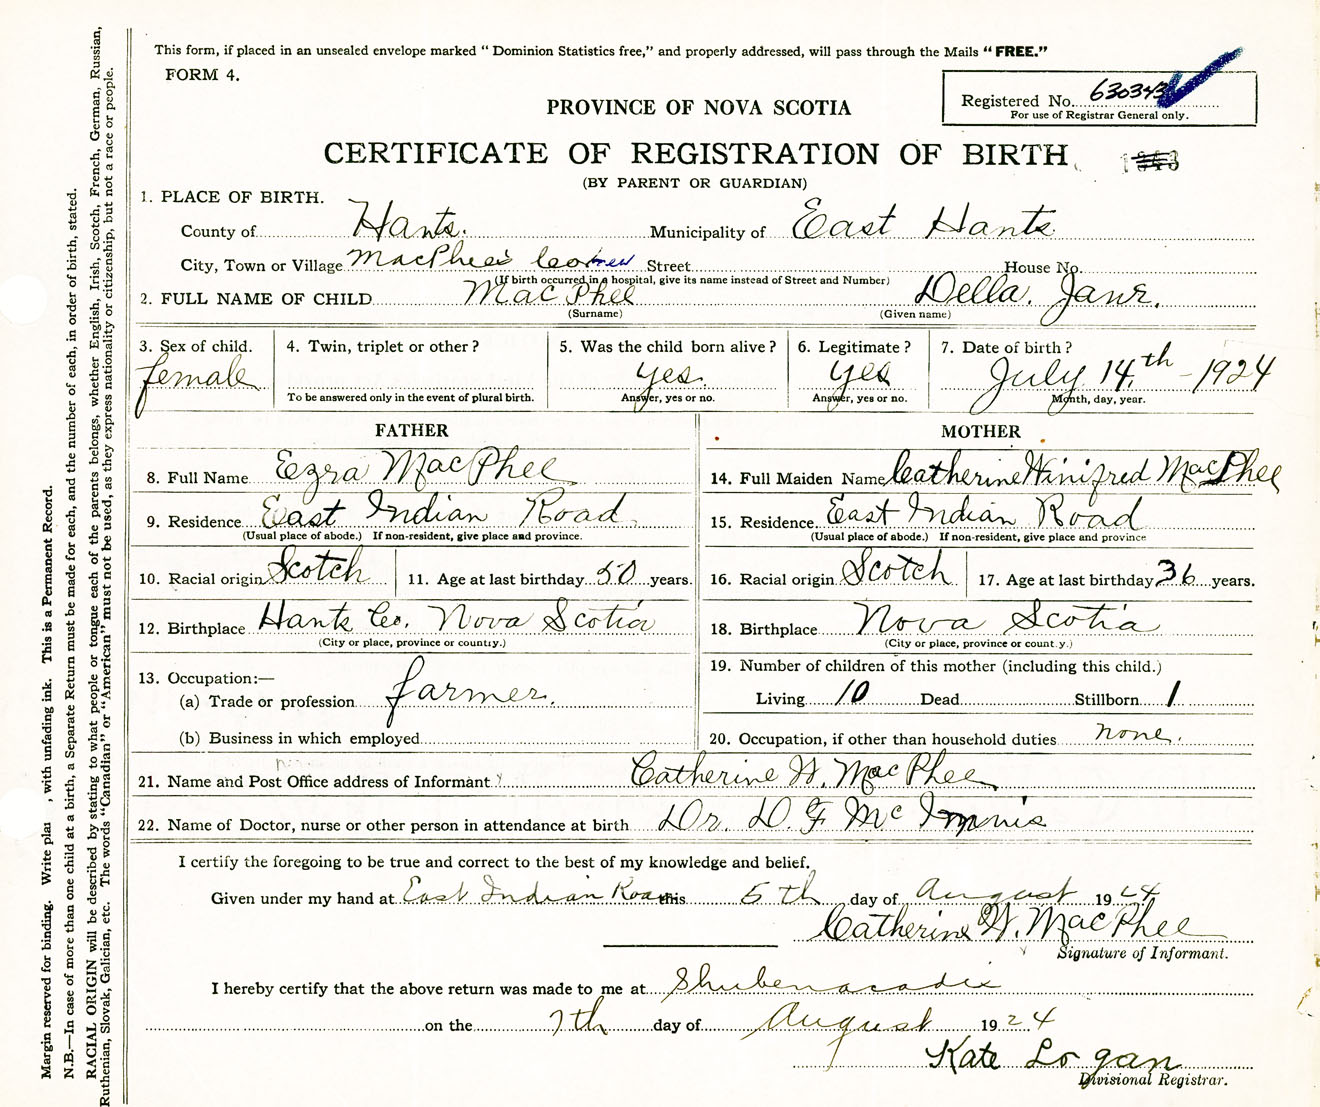 This form, if placed in an unsealed envelope marked " Dominion Statistics free," and properly addressed, will pass through the Mails "FREE."
FORM 4.
Registered No. 630343
For use of Registrar General only.
PROVINCE OF NOVA SCOTIA
CERTIFICATE OF REGISTRATION OF BIRTH
(BY PARENT OR GUARDIAN)
1. PLACE OF BIRTH.
County of Hants. Municipality of East Hants
City, Town or Village MacPhee's Corner Street House No.
(If birth occurred in a hospital, give its name instead of Street and Number)
2. FULL NAME OF CHILD MacPhee Della Jane.
(Surname) (Given name)
3. Sex of child. female
4. Twin, triplet or other ?
To be answered only in the event of plural birth.
5. Was the child born alive ? yes.
Answer, yes or no.
6. Legitimate ? yes
Answer, yes or no.
7. Date of birth ? July 14th - 1924
Month, day, year.
FATHER
8. Full Name Ezra MacPhee
9. Residence East Indian Road
(Usual place of abode.) If non-resident, give place and province.
10. Racial origin Scotch 11. Age at last birthday 50 years.
12. Birthplace Hants Co. Nova Scotia
(City or place, province or country.)
13. Occupation:—
(a) Trade or profession farmer.
(b) Business in which employed
MOTHER
14. Full Maiden Name Catherine Winifred MacPhee
15. Residence East Indian Road
(Usual place of abode.) If non-resident, give place and province
16. Racial origin Scotch 17. Age at last birthday 36 years.
18. Birthplace Nova Scotia
(City or place, province or country.)
19. Number of children of this mother (including this child.)
Living 10 Dead Stillborn 1
20. Occupation, if other than household duties none.
21. Name and Post Office address of Informant Catherine W. MacPhee
22. Name of Doctor, nurse or other person in attendance at birth Dr. D. F McInnis
I certify the foregoing to be true and correct to the best of my knowledge and belief.
Given under my hand at East Indian Road this 5th day of August 1924
Catherine W. MacPhee
Signature of Informant.
I hereby certify that the above return was made to me at Shubenacadie
on the 7th day of August 1924
Kate Logan
Divisional Registrar.
Margin reserved for binding. Write , with unfading ink. This is a Permanent Record.
N.B.—In case of more than one child at a birth, a Separate Return must be made for each, and the number of each, in order of birth, stated.
RACIAL ORIGIN will be described by stating to what people or tongue each of the parents belongs, whether English, Irish, Scotch, French, German, Russian,
Ruthenian, Slovak, Galician, etc. The words "Canadian" or "American" must not be used, as they express nationality or citizenship, but not a race or people.